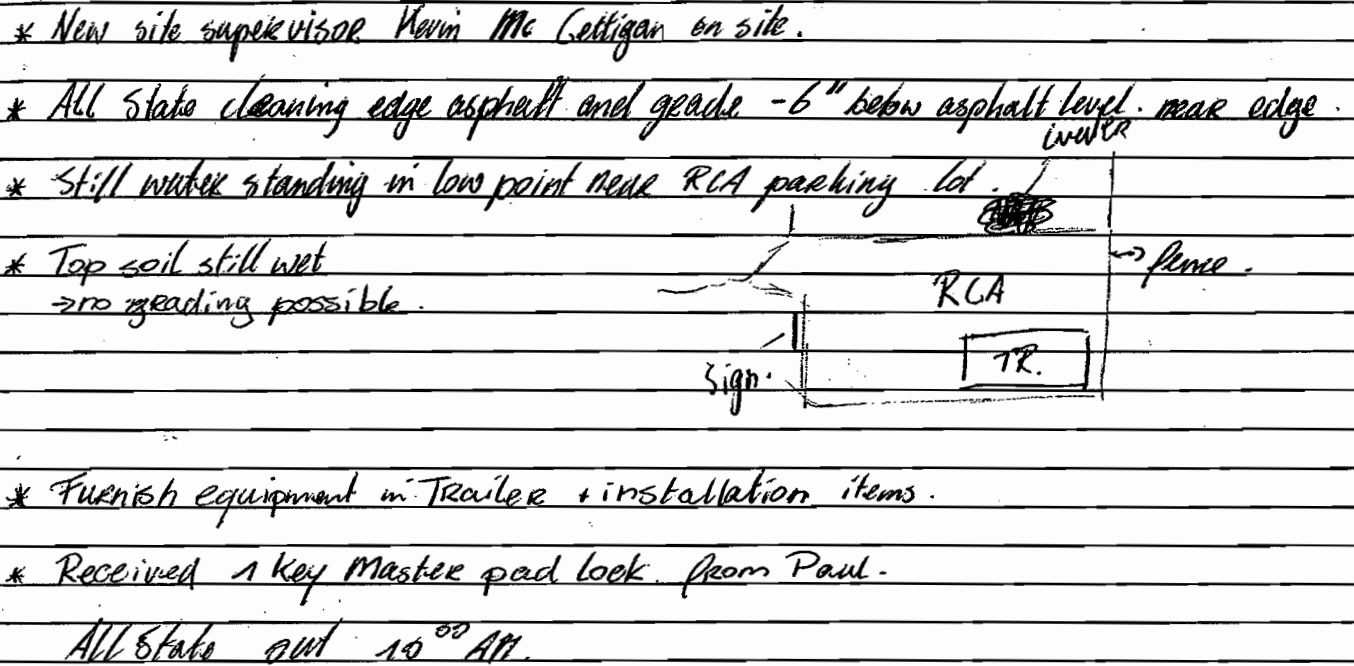 * New site supervisor Kevin Mc Gettigan on site.
* All State cleaning edge asphalt and grade -6" below asphalt level. near edge.
water
* Still water standing in low point near RCA parking lot.
* Top soil still wet
→ no grading possible.
fence.
RCA
TR.
Sign.
* Furnish equipment in Trailer + installation items.
* Received 1 key Master pad lock from Paul.
All State out 10⁰⁰ AM.